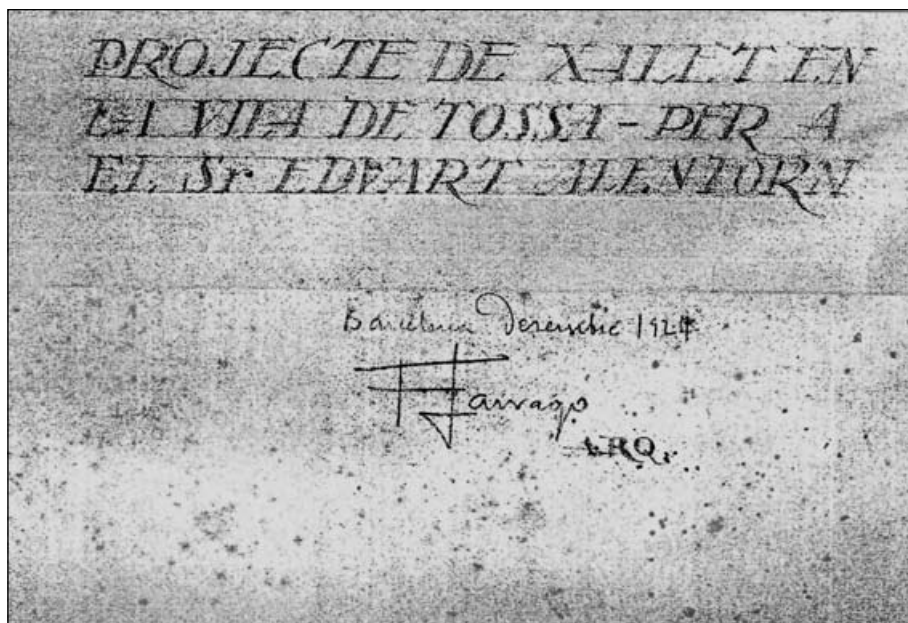 PROJECTE DE XALET EN
LA VILA DE TOSSA - PER A
EL Sr EDVART ALENTORN
Barcelona Desembre 1924
F Tarragó
ARQ.